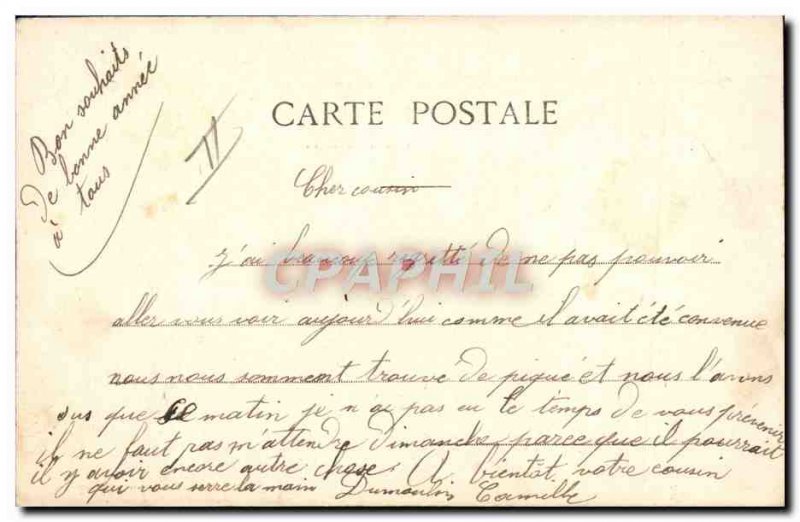 Bon souhaits
de bonne année
à tous
II
CARTE POSTALE
Cher cousin
J'ai beaucoup regrité de ne pas pouvoir
CPAPHIL
aller vous voir aujourd'hui comme il avait été convenue
nous nous somment trouvé de piqué et nous l'avons
sus que ce matin je n'ai pas eu le temps de vous prévenir
il ne faut pas m'attendre dimanche parce que il pourrait
il y avoir encore autre chose. A bientôt votre cousin
qui vous serre la main Dumoulin Camille